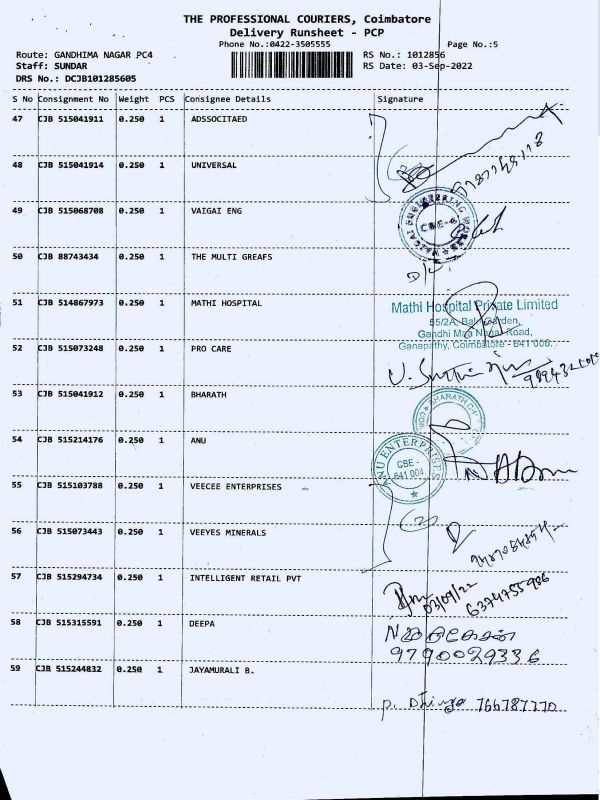 THE PROFESSIONAL COURIERS, Coimbatore
Delivery Runsheet - PCP
Phone No.:0422-3505555
Page No.:5
Route: GANDHIMA NAGAR PC4
RS No.: 1012856
Staff: SUNDAR
RS Date: 03-Sep-2022
DRS No.: DCJB101285605
S No Consignment No Weight PCS Consignee Details Signature
47 CJB 515041911 0.250 1 ADSSOCITAED
48 CJB 515041914 0.250 1 UNIVERSAL
49 CJB 515068708 0.250 1 VAIGAI ENG
VAIGAI ENGINEERING WORKS
CBE-6
50 CJB 88743434 0.250 1 THE MULTI GREAFS
51 CJB 514867973 0.250 1 MATHI HOSPITAL
Mathi Hospital Private Limited
Gandhi Maa Nagar Road,
Ganapathy, Coimbatore - 641 006.
52 CJB 515073248 0.250 1 PRO CARE
53 CJB 515041912 0.250 1 BHARATH
BHARATH
54 CJB 515214176 0.250 1 ANU
ANU ENTERPRISES
CBE -
641 004.
55 CJB 515103788 0.250 1 VEECEE ENTERPRISES
56 CJB 515073443 0.250 1 VEEYES MINERALS
57 CJB 515294734 0.250 1 INTELLIGENT RETAIL PVT
03/09/22
6374755986
58 CJB 515315591 0.250 1 DEEPA
9790029336
59 CJB 515244832 0.250 1 JAYAMURALI B.
P. Dhivya 766787770